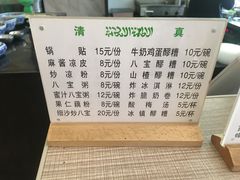 清 真
锅贴 15元/份 牛奶鸡蛋醪糟 10元/碗
麻酱凉皮 8元/份 八宝醪糟 10元/碗
炒凉粉 8元/份 山楂醪糟 10元/碗
八宝粥 8元/碗 炸冰淇淋 12元/份
蜜汁八宝粥 12元/份 炸脆奶卷 12元/份
果仁藕粉 8元/碗 酸梅汤 5元/杯
细沙炒八宝 20元/份 冰镇醪糟 5元/杯